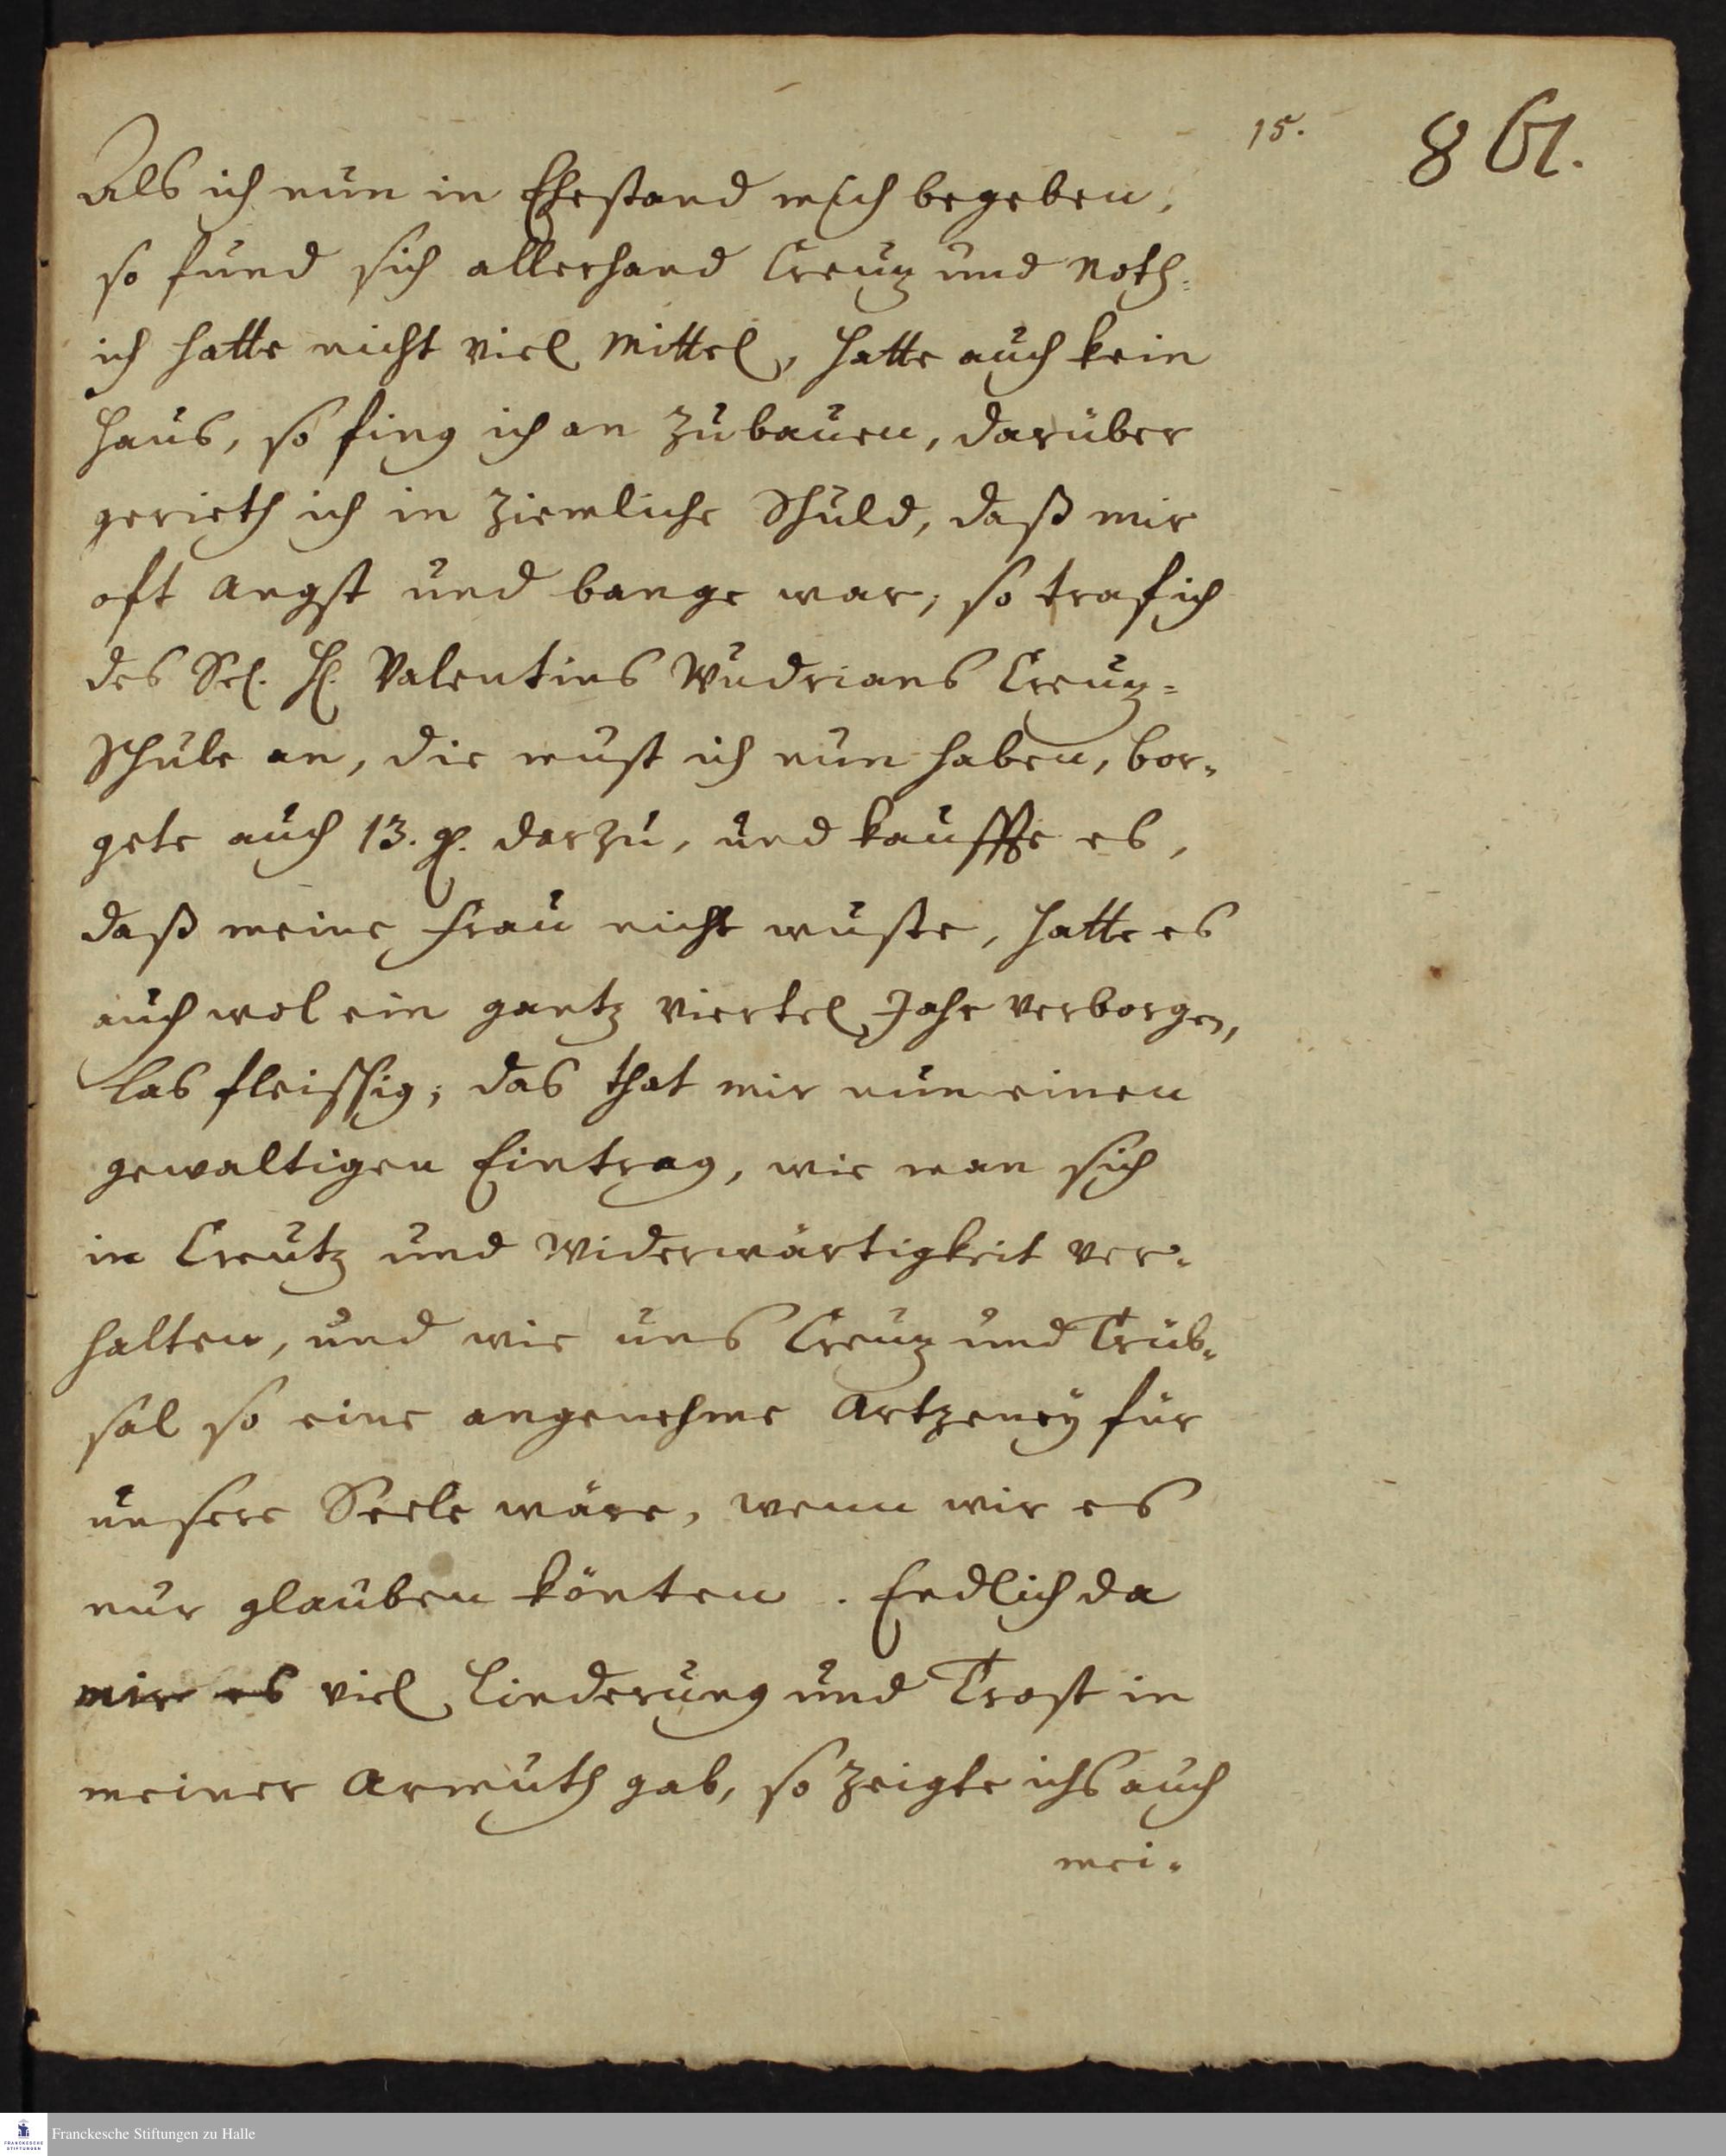 15.
861.
Als ich nun in Ehestand mich begeben,
so fund sich allerhand Creuz und Noth:
ich hatte nicht viel Mittel, hatte auch kein
Haus, so fing ich an zubauen, darüber
gerieth ich in ziemliche Schuld, daß mir
oft Angst und bange war, so traf ich
des Sel. H. Valentins Wudrians Creuz-
Schule an, die must ich nun haben, bor-
gete auch 13. g. darzu, und kauffte es,
daß meine Frau nicht wuste, hatte es
auch wol ein gantz viertel Jahr verborgen,
Las fleissig, das that mir nun einen
gewaltigen Eintrag, wie man sich
in Creutz und Widerwärtigkeit ver-
halten, und wie uns Creuz und Trüb-
sal so eine angenehme Artzeney für
unsere Seele wäre, wenn wir es
nur glauben könten. Endlich da
mir es viel Linderung und Trost in
meiner Armuth gab, so zeigte ichs auch
mei-
Franckesche Stiftungen zu Halle
FRANCKESCHE
STIFTUNGEN